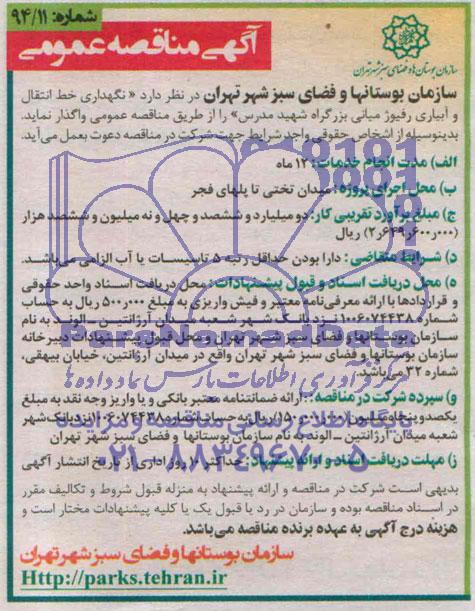 شماره: ۹۴/۱۱
آگهی مناقصه عمومی
سازمان بوستان‌ها و فضای سبز شهر تهران
سازمان بوستانها و فضای سبز شهر تهران در نظر دارد « نگهداری خط انتقال
و آبیاری رفیوژ میانی بزرگراه شهید مدرس» را از طریق مناقصه عمومی واگذار نماید.
بدینوسیله از اشخاص حقوقی واجد شرایط جهت شرکت در مناقصه دعوت بعمل می‌آید.
الف) مدت انجام خدمات: ۱۲ ماه
ب) محل اجرای پروژه: میدان تختی تا پلهای فجر
ج) مبلغ برآورد تقریبی کار: دو میلیارد و ششصد و چهل و نه میلیون و ششصد هزار
(۲٫۶۴۹٫۶۰۰٫۰۰۰) ریال
د) شرایط متقاضی: دارا بودن حداقل رتبه ۵ تاسیسات یا آب الزامی می‌باشد.
ه) محل دریافت اسناد و قبول پیشنهادات: محل دریافت اسناد واحد حقوقی
و قراردادها با ارائه معرفی‌نامه معتبر و فیش واریزی به مبلغ ۵۰۰٫۰۰۰ ریال به حساب
شماره ۱۰۰۶۰۷۴۴۳۸ نزد بانک شهر شعبه میدان آرژانتین - الوند به نام
سازمان بوستانها و فضای سبز شهر تهران و محل قبول پیشنهادات دبیرخانه
سازمان بوستانها و فضای سبز شهر تهران واقع در میدان آرژانتین، خیابان بیهقی،
شماره ۳۲ می‌باشد.
و) سپرده شرکت در مناقصه: ارائه ضمانتنامه معتبر بانکی و یا واریز وجه نقد به مبلغ
یکصد و پنجاه میلیون (۱۵۰٫۰۰۰٫۰۰۰) ریال به حساب شماره ۱۰۰۶۰۷۴۴۳۸ نزد بانک شهر
شعبه میدان آرژانتین - الوند به نام سازمان بوستانها و فضای سبز شهر تهران
ز) مهلت دریافت اسناد و ارائه پیشنهاد: حداکثر روز اداری از تاریخ انتشار آگهی
بدیهی است شرکت در مناقصه و ارائه پیشنهاد به منزله قبول شروط و تکالیف مقرر
در اسناد مناقصه بوده و سازمان در رد یا قبول یک یا کلیه پیشنهادات مختار است و
هزینه درج آگهی به عهده برنده مناقصه می‌باشد.
سازمان بوستانها و فضای سبز شهر تهران
Http://parks.tehran.ir
ParsNamadData
مرکز فرآوری اطلاعات پارس نماد داده ها
پایگاه اطلاع رسانی مناقصه و مزایده
۰۲۱-۸۸۳۴۹۶۷۰-۵